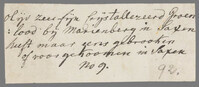 olijd zeer fijn Crystalliseerd Groen
:lood bij Mariënberg in Saxen
heeft maar eens gebrooken
of voorgekoomen in Saxen
No 9. 92.